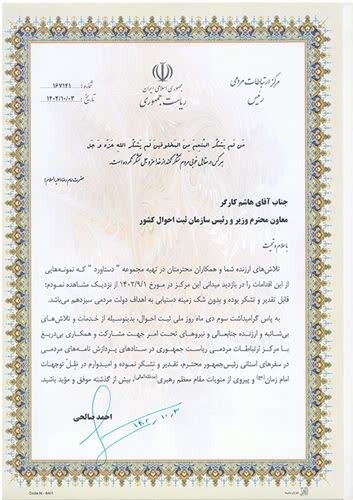 مرکز ارتباطات مردمی
رئیس
جمهوری اسلامی ایران
ریاست جمهوری
شماره: ۱۶۷۱۴۱
تاریخ: ۱۴۰۲/۱۰/۰۳
مَن لَم یَشکُرِ المُنعِمَ مِنَ المَخلوقینَ لَم یَشکُرِ اللهَ عَزَّ وَ جَلَّ
هر کس در مقابل خوبی مردم تشکر نکند از خدا عزوجل تشکر نکرده است.
حضرت امام رضا (علیه السلام)
جناب آقای هاشم کارگر
معاون محترم وزیر و رئیس سازمان ثبت احوال کشور
با سلام و تحیت
تلاش‌های ارزنده شما و همکاران محترمتان در تهیه مجموعه " دستاورد " که نمونه‌هایی
از این اقدامات را در بازدید میدانی این مرکز در مورخ ۱۴۰۲/۹/۱ از نزدیک مشاهده نمودم؛
قابل تقدیر و تشکر بوده و بدون شک زمینه دستیابی به اهداف دولت مردمی سیزدهم می‌باشد.
به پاس گرامیداشت سوم دی ماه روز ملی ثبت احوال، بدینوسیله از خدمات و تلاش‌های
بی‌شائبه و ارزنده جنابعالی و نیروهای تحت امر جهت مشارکت و همکاری بی‌دریغ
با مرکز ارتباطات مردمی ریاست جمهوری در ستادهای پردازش نامه‌های مردمی
در سفرهای استانی رئیس‌جمهور محترم، تقدیر و تشکر نموده و امیدوارم در ظل توجهات
امام زمان (عج) و پیروی از منویات مقام معظم رهبری (مدظله العالی) بیش از گذشته موفق و مؤید باشید.
احمد صالحی
۱۴۰۲،۱۰،۳
Code.N - 64/1